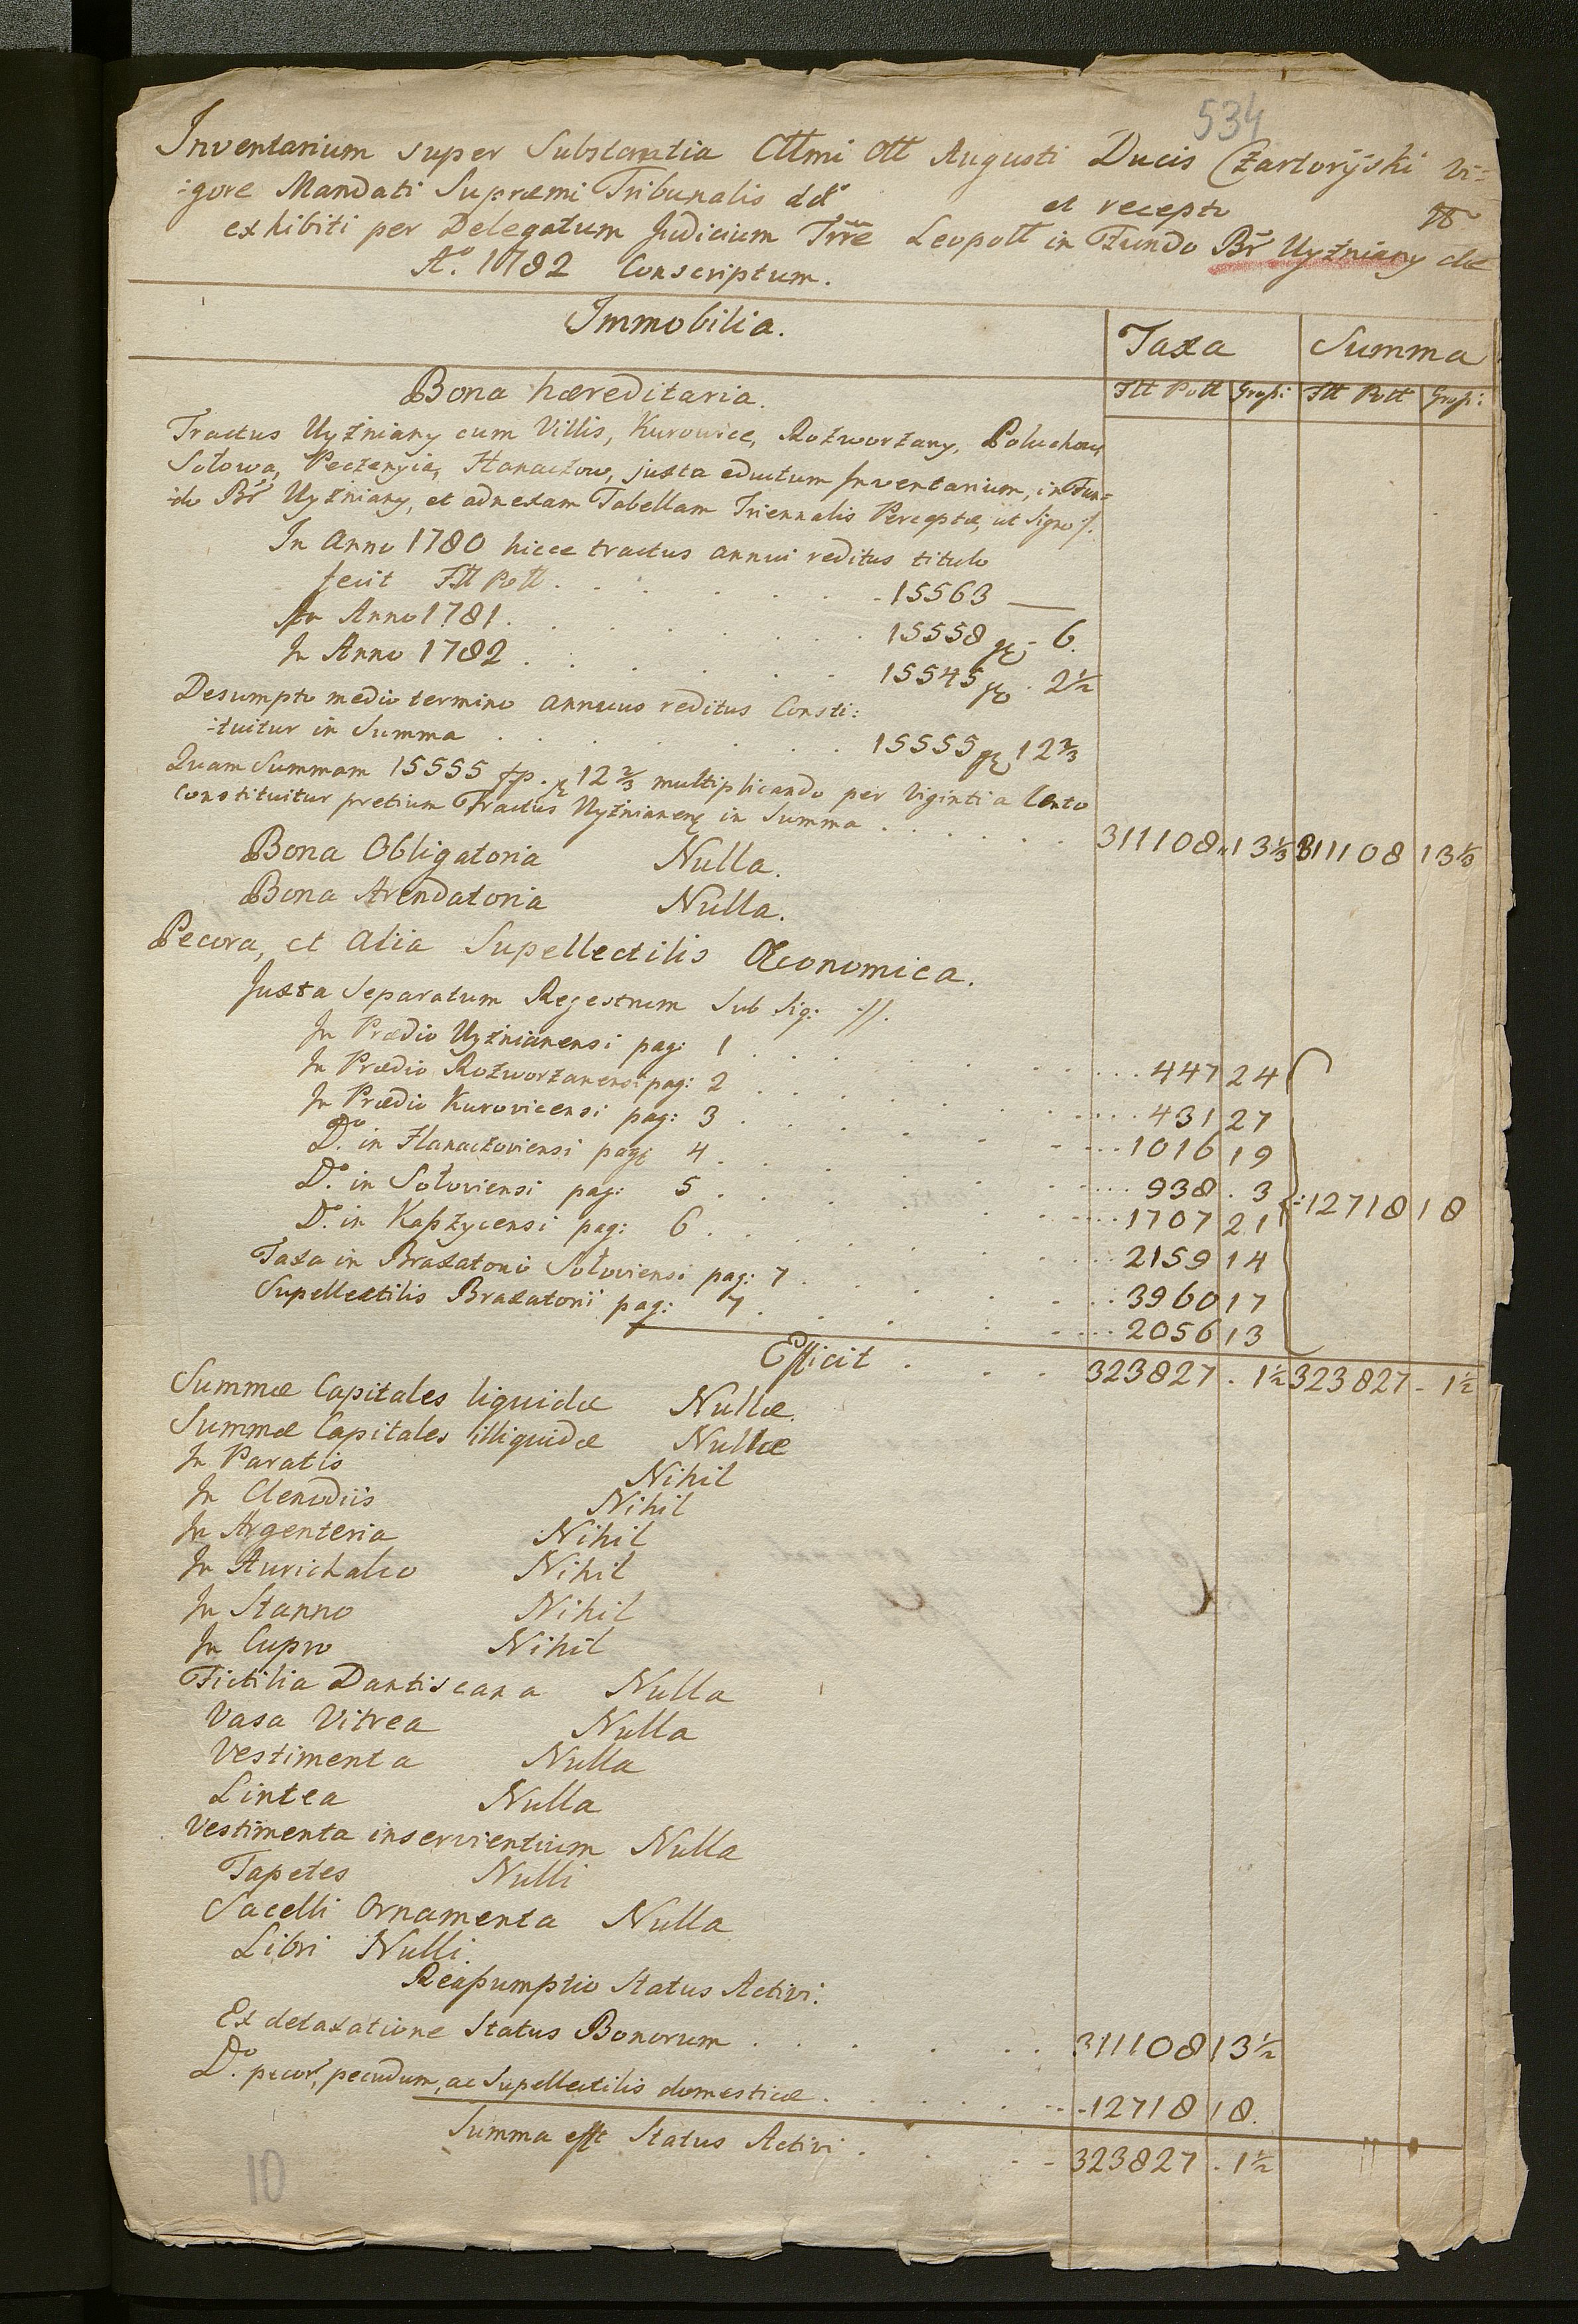 534
Inventarium super Substantia Cttmi Ott Augusti Ducis Czartoryjski Vi=
:gore Mandati Supremi Tribunalis dd°
et recepto
exhibiti per Delegatum Judicium Trre Leopott in Fundo Br Uyżniany de
A°. 1782 Conscriptum.
Immobilia. Taxa Summa
Bona hæreditaria. Ftt Pott Groß: Ftt Pott Groß:
Tractus Uyżniany cum Villis, Kurowice, Rożworzany, Poluchow
Sołowa, Peczenyia, Hanaczow, juxta eductum Inventarium, in Fun=
:do Br Uyżniany, et adnexam Tabellam Triennalis Perceptæ, ut Signo ·/.
In Anno 1780 hicce tractus annui reditus titulo
fecit Ftt Pott . . . . . . 15563 —
In Anno 1781 . . . . . . 15558 gr - 6.
In Anno 1782 . . . . . 15545 gr . 2½
Desumpto medio termino annuus reditus Consti:
:tuitur in Summa . . . . . . 15555 gr 12⅔
Quam Summam 15555 fp. gr 12⅔ multiplicando per Viginti a Cento
Constituitur pretium Tractus Uyżnianens in Summa . . . . . . 311108 13⅓ 311108 13⅓
Bona Obligatoria Nulla.
Bona Arendatoria Nulla.
Pecora, et Alia Supellectilis Œconomica.
Juxta Separatum Regestrum Sub Sig: ·//.
In Prædio Uyżnianensi pag: 1 . . . . . 447 24
In Prædio Rożworzanensi pag: 2 . . . . . 431 27
In Prædio Kurovicensi pag: 3 . . . . . 1016 19
D°. in Hanaczoviensi pag: 4 . . . . . 938 . 3
12718 18
D°. in Sołoviensi pag: 5 . . . . . 1707 21
D°. in Kaßżycensi pag: 6 . . . . . 2159 14
Taxa in Braxatorio Sołoviensi pag: 7 . . . . 3960 17
Supellectilis Braxatorii pag: 7 . . . . . 2056 13
Efficit . . . 323827 . 1½ 323827 - 1½
Summæ Capitales liquidæ Nullæ.
Summæ Capitales illiquidæ Nullæ
In Paratis Nihil
In Clenodiis Nihil
In Argenteria Nihil
In Aurichalco Nihil
In Stanno Nihil
In Cupro Nihil
Fictilia Dantiscana Nulla
Vasa Vitrea Nulla
Vestimenta Nulla
Lintea Nulla
Vestimenta inservientium Nulla
Tapetes Nulli
Sacelli Ornamenta Nulla
Libri Nulli.
Reaßumptio Status Activi.
Ex detaxatione Status Bonorum . . . . . . 311108 13½
D°. pecor, pecudum, ac Supellectilis domesticæ . . . . . 12718 18.
Summa est Status Activi . . . 323827 . 1½
10